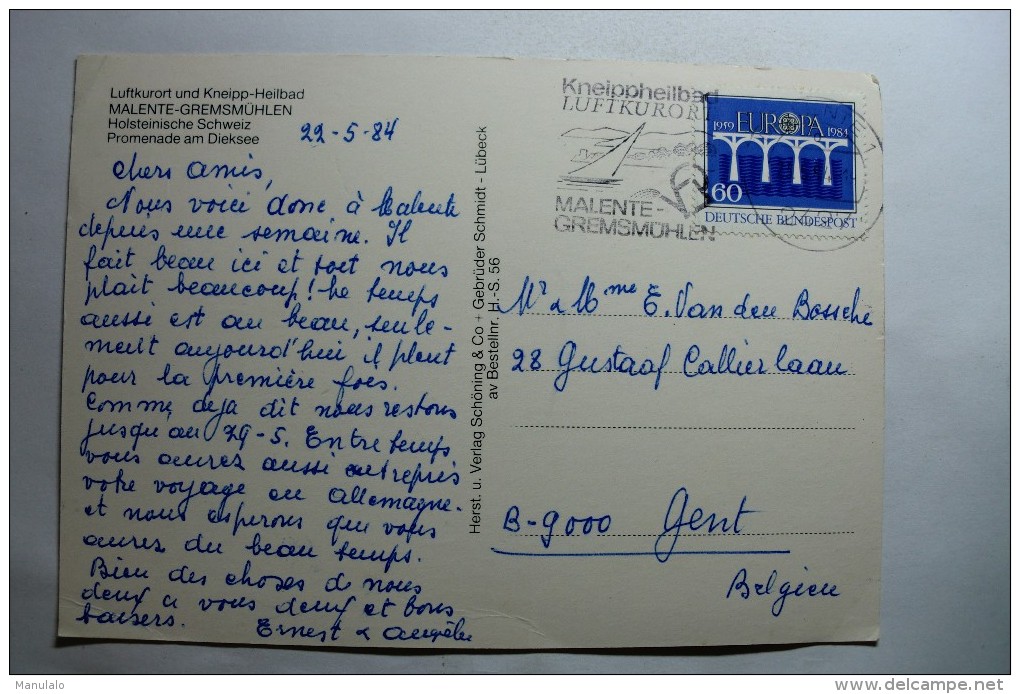 Luftkurort und Kneipp-Heilbad
MALENTE-GREMSMÜHLEN
Holsteinische Schweiz
Promenade am Dieksee
22-5-84
Chers amis,
Nous voici donc à Malente
depuis une semaine. Il
fait beau ici et tout nous
plait beaucoup! Le temps
aussi est au beau, seule-
ment aujourd'hui il pleut
pour la première fois.
Comme déja dit nous restons
jusqu'au 29-5. Entre temps
vous aurez aussi entrepris
votre voyage en Allemagne.
et nous esperons que vous
aurez du beau temps.
Bien des choses de nous
deux a vous deux et bons
baisers.
Ernest & Angèle
Herst. u. Verlag Schöning & Co + Gebrüder Schmidt - Lübeck
av Bestellnr. H.-S. 56
Kneippheilbad
LUFTKURORT
MALENTE-
GREMSMÜHLEN
1959 EUROPA 1984
60
DEUTSCHE BUNDESPOST
Mr & Mme E. Van den Bossche
28 Gustaaf Callierlaan
B-9000 Gent
Belgien
www.delcampe.net
Manulalo